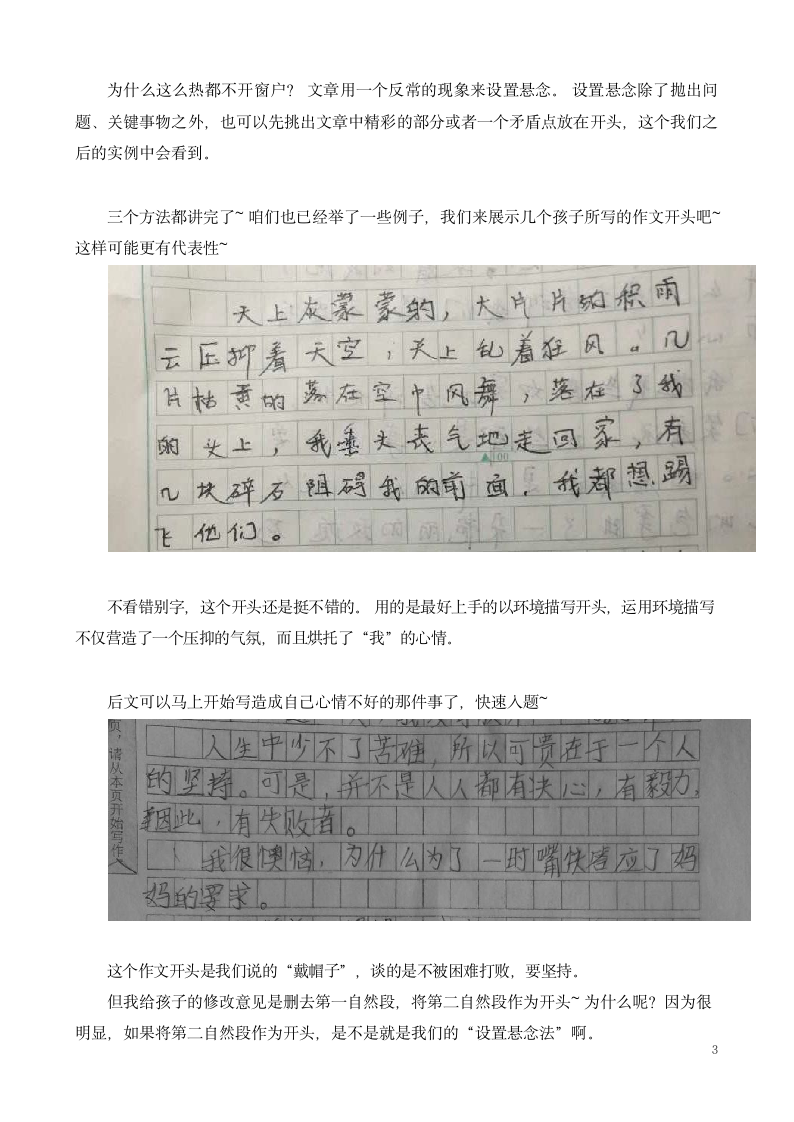 为什么这么热都不开窗户？ 文章用一个反常的现象来设置悬念。 设置悬念除了抛出问
题、关键事物之外，也可以先挑出文章中精彩的部分或者一个矛盾点放在开头，这个我们之
后的实例中会看到。
三个方法都讲完了~ 咱们也已经举了一些例子，我们来展示几个孩子所写的作文开头吧~
这样可能更有代表性~
天上灰蒙蒙的，大片片的积雨
云压抑着天空；天上乱着狂风。几
片枯黄的落在空中风舞，落在了我
的头上，我垂头丧气地走回家，有
100
几块碎石阻碍我的前面，我都想踢
飞他们。
不看错别字，这个开头还是挺不错的。 用的是最好上手的以环境描写开头，运用环境描写
不仅营造了一个压抑的气氛，而且烘托了“我”的心情。
后文可以马上开始写造成自己心情不好的那件事了，快速入题~
页，请从本页开始写作
人生中少不了苦难，所以可贵在于一个人
的坚持。可是，并不是人人都有决心，有毅力，
因此，有失败者。
我很懊恼，为什么为了一时嘴快答应了妈
妈的要求。
这个作文开头是我们说的“戴帽子”，谈的是不被困难打败，要坚持。
但我给孩子的修改意见是删去第一自然段，将第二自然段作为开头~ 为什么呢？因为很
明显，如果将第二自然段作为开头，是不是就是我们的“设置悬念法”啊。
3